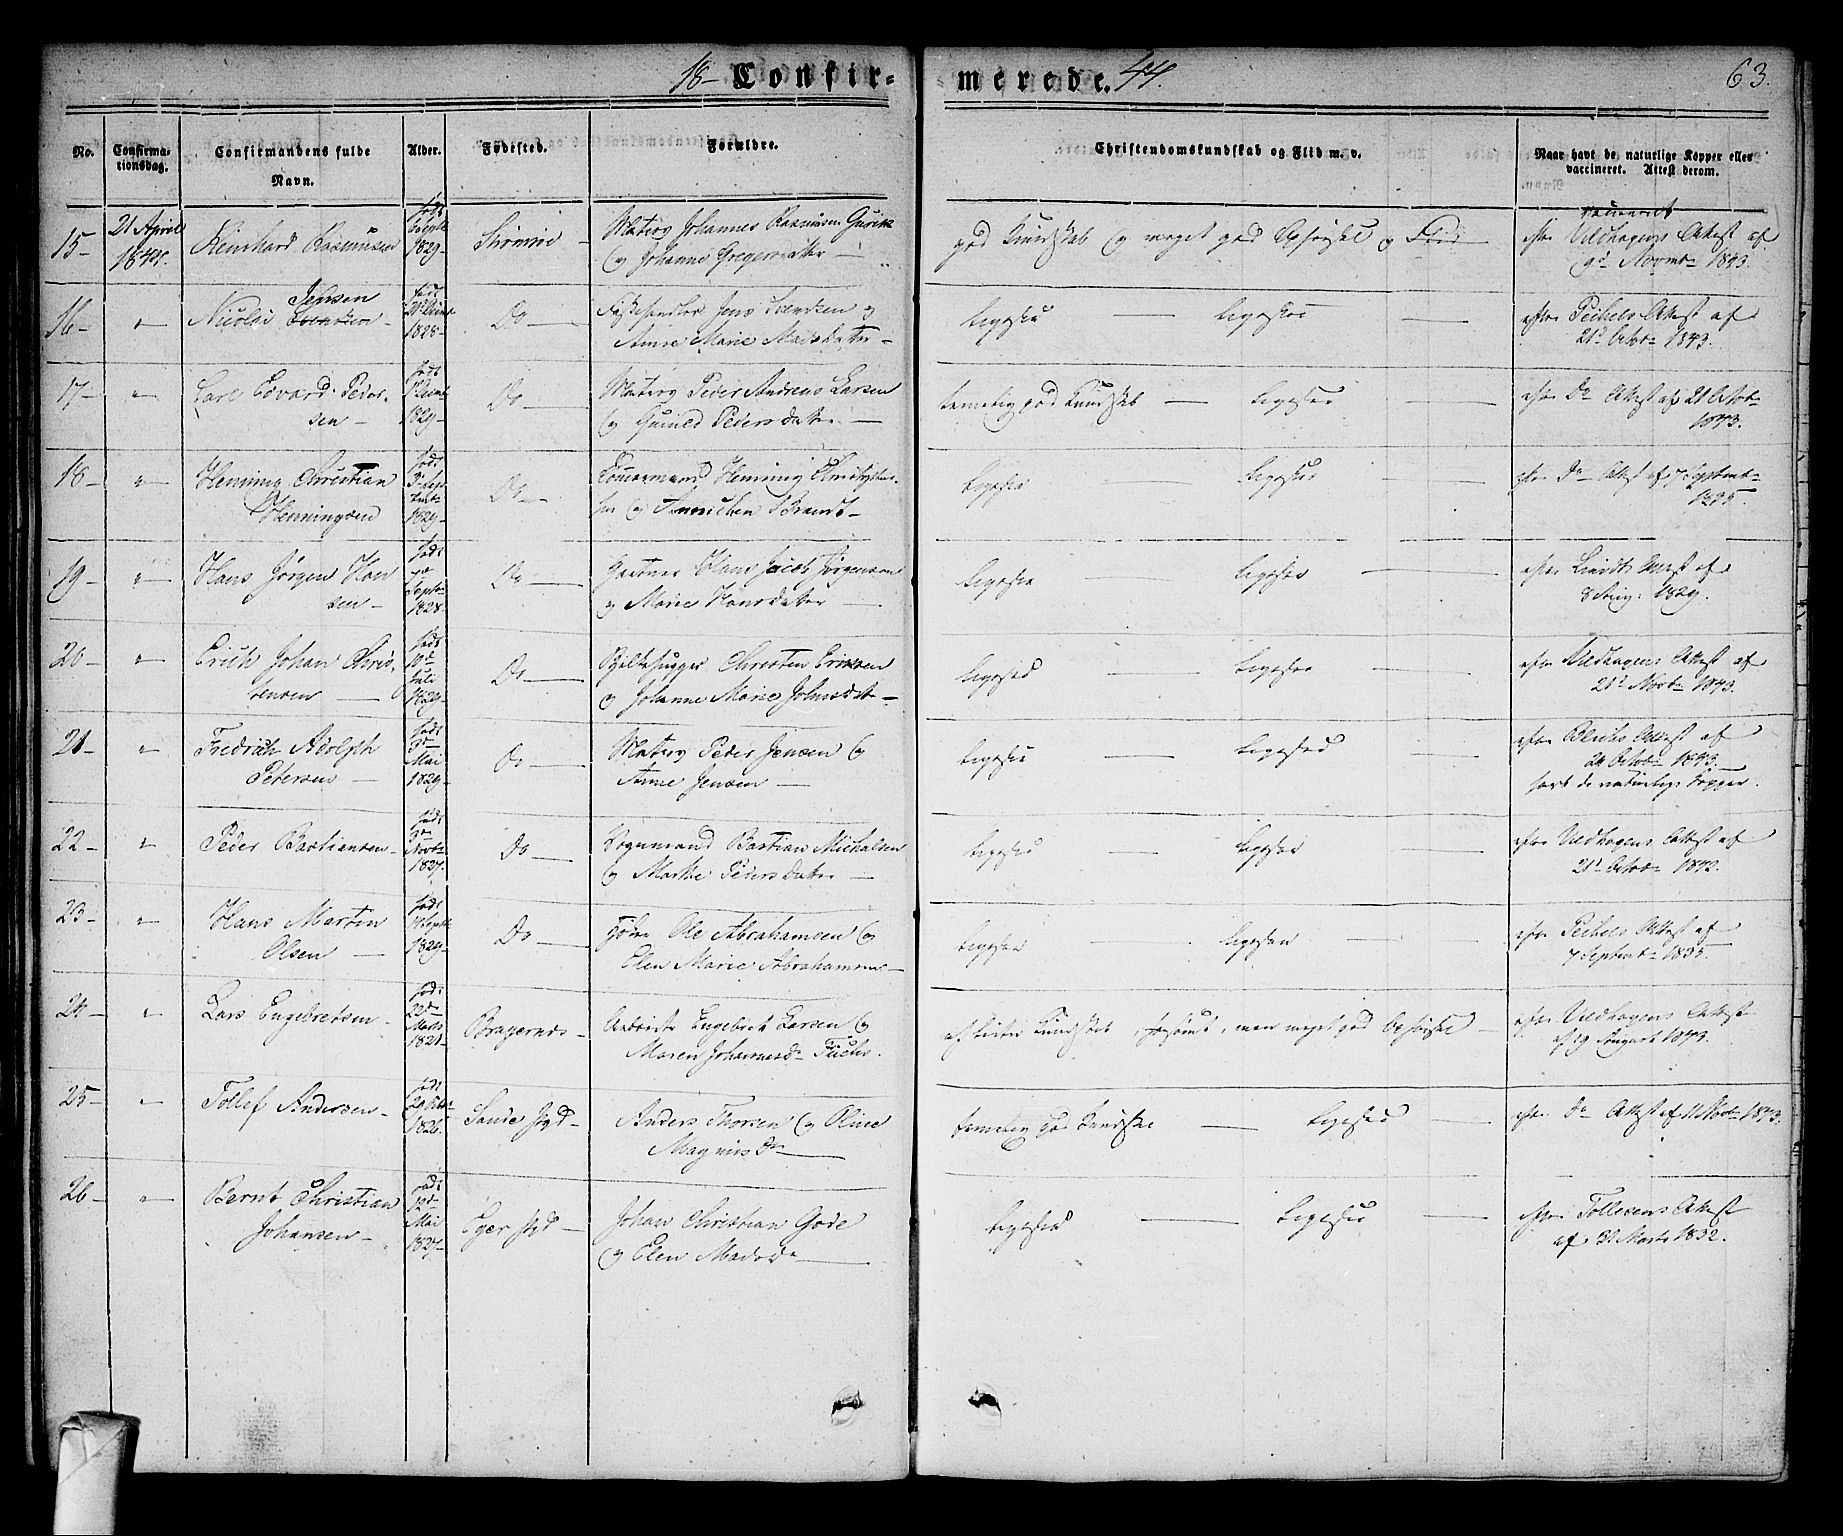 18- Confir-
merede. 44.
63.
No.
Confirma-
tionsdag.
Confirmandens fulde
Navn.
Alder.
Fødested.
Forældre.
Christendomskundskab og Flid m. v.
Naar havt de naturlige Kopper eller
vaccineret. Attest derom.
15-
21 April
1844.
Reinhard Rasmusen
født
1829-
Strømsøe -
Matros Johannes Rasmusen
og Johanne Gregersdatter -
god Kundskab og meget god Opførsel og Flid
vaccineret
efter Vildhagens Attest af
9d Novemb 1843.
16-
"
Nicolai Jensen
Svendsen -
født
1828-
Do -
Jens Svendsen og
Anne Marie Madsdatter -
Ligesaa - Ligesaa -
efter Peihels Attest af
21d Octob 1843.
17-
"
Carl Edvard Peder-
sen -
født
1829-
Do -
Matros Peder Andreas Larsen
og Gunild Pedersdatter -
temelig god Kundskab - Ligesaa -
efter Do Attest af 21 Octob
1843.
18-
"
Henning Christian
Henningsen
født
1829-
Do -
Tømermand Henning Christophe-
sen og Annichen Brandt-
Ligesaa - Ligesaa -
efter Do Attest af 7 Septemb
1835.
19-
"
Hans Jørgen Han
sen -
født
Septb
1828.
Do -
Gartner Hans Jacob Jørgensen
og Marie Hansdatter -
Ligesaa - Ligesaa -
efter Lindts Attest af
1829.
20-
"
Erich Johan Chris-
tensen -
født
10d
Juli
1829-
Do -
Christen Ericksen
og Johanne Marie Johnsdat -
Ligesaa - Ligesaa -
efter Vildhagens Attest af
21d Novb 1843.
21-
"
Fredrich Adolph
Petersen -
født
3d
Mai
1829-
Do -
Matros Peder Jensen og
Anne Jensen -
Ligesaa - Ligesaa -
efter Attest af
24 Octob 1843.
havt de naturlige Kopper.
22-
"
Peder Bastiansen -
født
Novb
1827.
Do -
Vognmand Bastian Michalsen
og Marthe Pedersdatter -
Ligesaa - Ligesaa -
efter Vildhagens Attest af
21d Octob 1843.
23-
"
Hans Martin
Olsen -
født
1829-
Do -
Ole Abrahamsen og
Elen Marie Abrahamsen -
Ligesaa - Ligesaa -
efter Peihels Attest af
7 Septemb 1835.
24-
"
Lars Engebretsen -
født
22d
Marts
1821-
Bragernæs -
Engebret Larsen og
Maren Johannesd Fuchs.
af liden Kundskab, men meget god Opførsel -
efter Vildhagens Attest
af 9 August 1843.
25-
"
Tollef Andersen -
født
1826.
Sande Pgd -
Anders Thorsen og Oline
Magnusdr -
temelig god Kundskab - Ligesaa -
efter Do Attest af 11 Novb 1843.
26-
"
Bernt Christian
Johansen -
født
12d
Mai
1827-
Eger Pgd -
Johan Christian Gode
og Elen Madsdr -
Ligesaa - Ligesaa -
efter Tollesens Attest
af 31 Marts 1832.